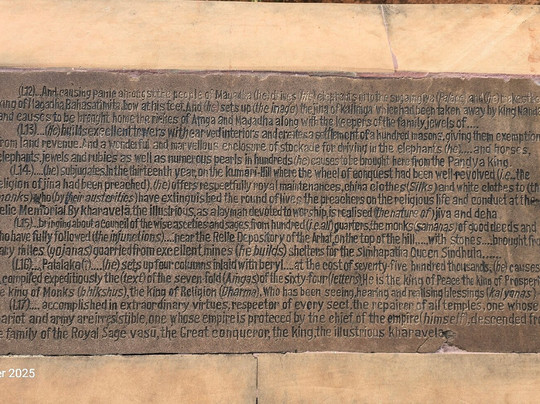 (L12)...And causing panic amongst the people of Magadha (he) drives (his) elephants into the Sugamgiya (Palace), and (he) makes the
king of Magadha Bahasatimita bow at his feet. And (he) sets up (the image) the jina of Kalinga which had been taken away by King Nanda
and causes to be brought home the riches of Amga and Magadha along with the keepers of the family jewels of....
(L13)....(he) builds excellent towers with carved interiors and creates a settlement of a hundred masons, giving them exemption
from land revenue. And a wonderful and marvellous enclosure of stockade for driving in the elephants (he)..... and horses,
elephants, jewels and rubies as well as numerous pearls in hundreds (he) causes to be brought here from the Pandya King
(L14)....(he) subjugates. In the thirteenth year, on the Kumari Hill where the wheel of conquest had been well revolved (i.e., the
religion of jina had been preached), (he) offers respectfully royal maintenances, china clothes (Silks) and white clothes to (the
monks) who (by their austerities) have extinguished the round of lives, the preachers on the religious life and conduct at the
Relic Memorial. By Kharavela, the illustrious, as a layman devoted to worship, is realised (the nature of) jiva and deha
(L15)...bringing about a council of the wise ascetics and sages, from hundred (i.e. all) quarters, the monks (samanas) of good deeds and
who have fully followed (the injunctions)....near the Relic Depository of the Arhat, on the top of the hill.....with stones....brought from
many miles (yojanas) quarried from excellent mines (he builds) shelters for the Sinhapatha Queen Sindhula.......
(L16)....Patalaka(?)....(he) sets up four columns inlaid with beryl....at the cost of seventy-five hundred thousands, (he) causes
compiled expeditiously the (text) of the seven-fold (Angas) of the sixty-four (letters). He is the King of Peace the King of Prosperity
the king of Monks (bhikshus), the King of Religion (Dharma), Who has been seeing, hearing and realising blessings (Kalyanas)
(L17).... accomplished in extraordinary virtues, respector of every sect, the repairer of all temples, one whose
chariot and army are irresistible, one whose empire is protected by the chief of the empire (himself), descended from
the family of the Royal Sage Vasu, the Great conqueror, the King, the illustrious Kharavela
2025